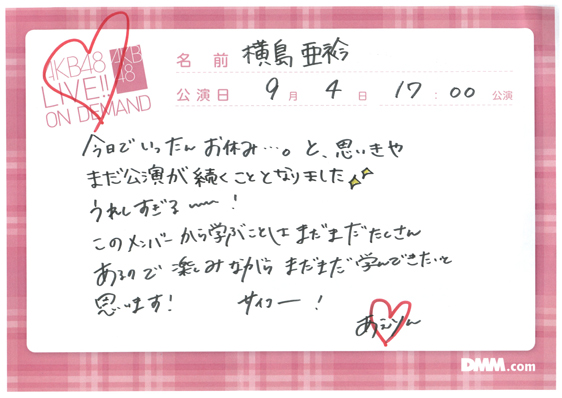 AKB48
LIVE!!
ON DEMAND
AKB
48
名前 横島亜衿
公演日 9月4日 17:00 公演
今日でいったんお休み…。と、思いきや
まだ公演が続くこととなりました
うれしすぎる〜〜!
このメンバーから学ぶことはまだまだたくさん
あるので楽しみながらまだまだ学んできたいと
思います! サイコー!
あえりん
DMM.com